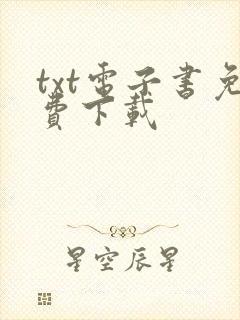 txt電子書免
費下載
星空辰星